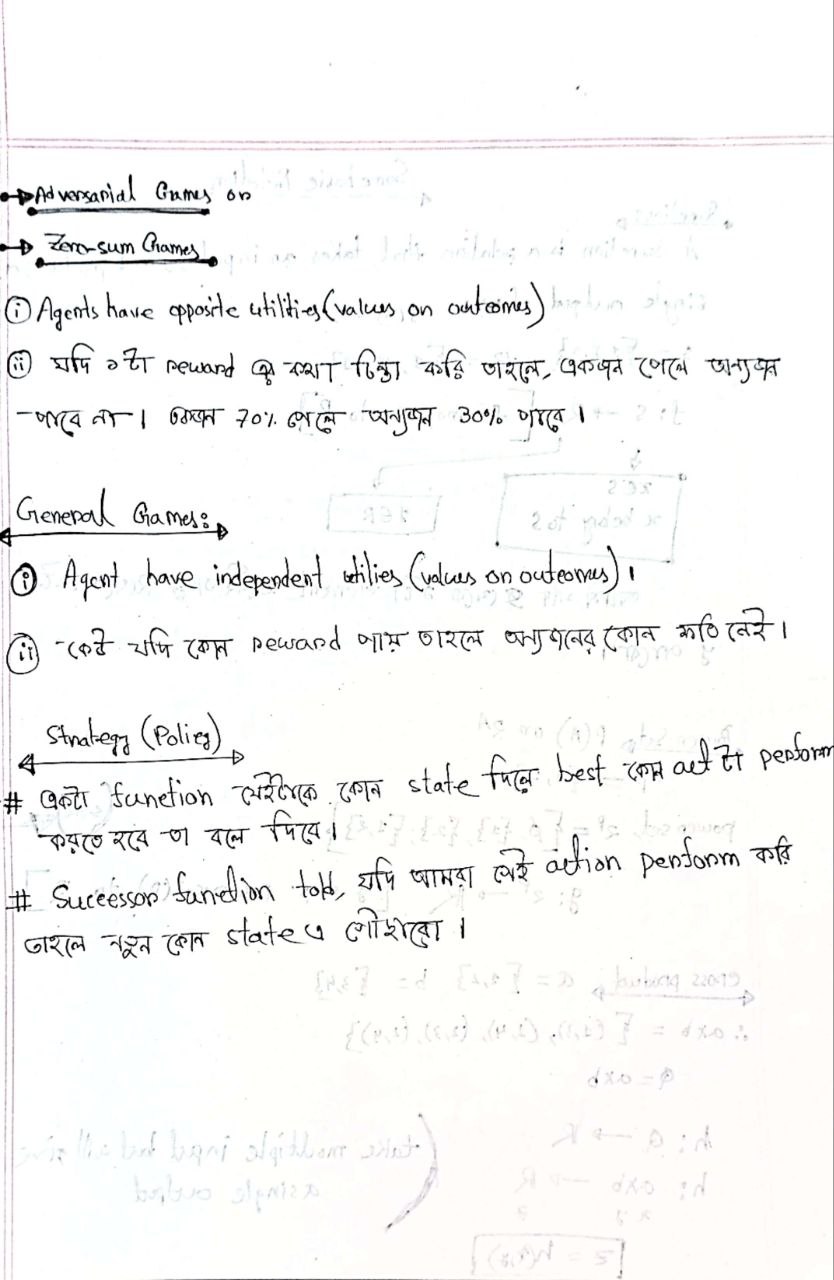 Adversarial Games or
Zero-sum Games
(i) Agents have opposite utilities (values on outcomes)
(ii) যদি ১টা reward এর কথা চিন্তা করি তাহলে, একজন পেলে অন্যজন
পাবে না। একজন 70% পেলে অন্যজন 30% পাবে।
General Games:
(i) Agent have independent utilies (values on outcomes)।
(ii) কেউ যদি কোন reward পায় তাহলে অন্যজনের কোন ক্ষতি নেই।
Strategy (Policy)
# একটা function যেইটাকে কোন state দিলে best কোন act টা perform
করতে হবে তা বলে দিবে।
# Successor function told, যদি আমরা সেই action perform করি
তাহলে নতুন কোন state এ পৌছাবো।